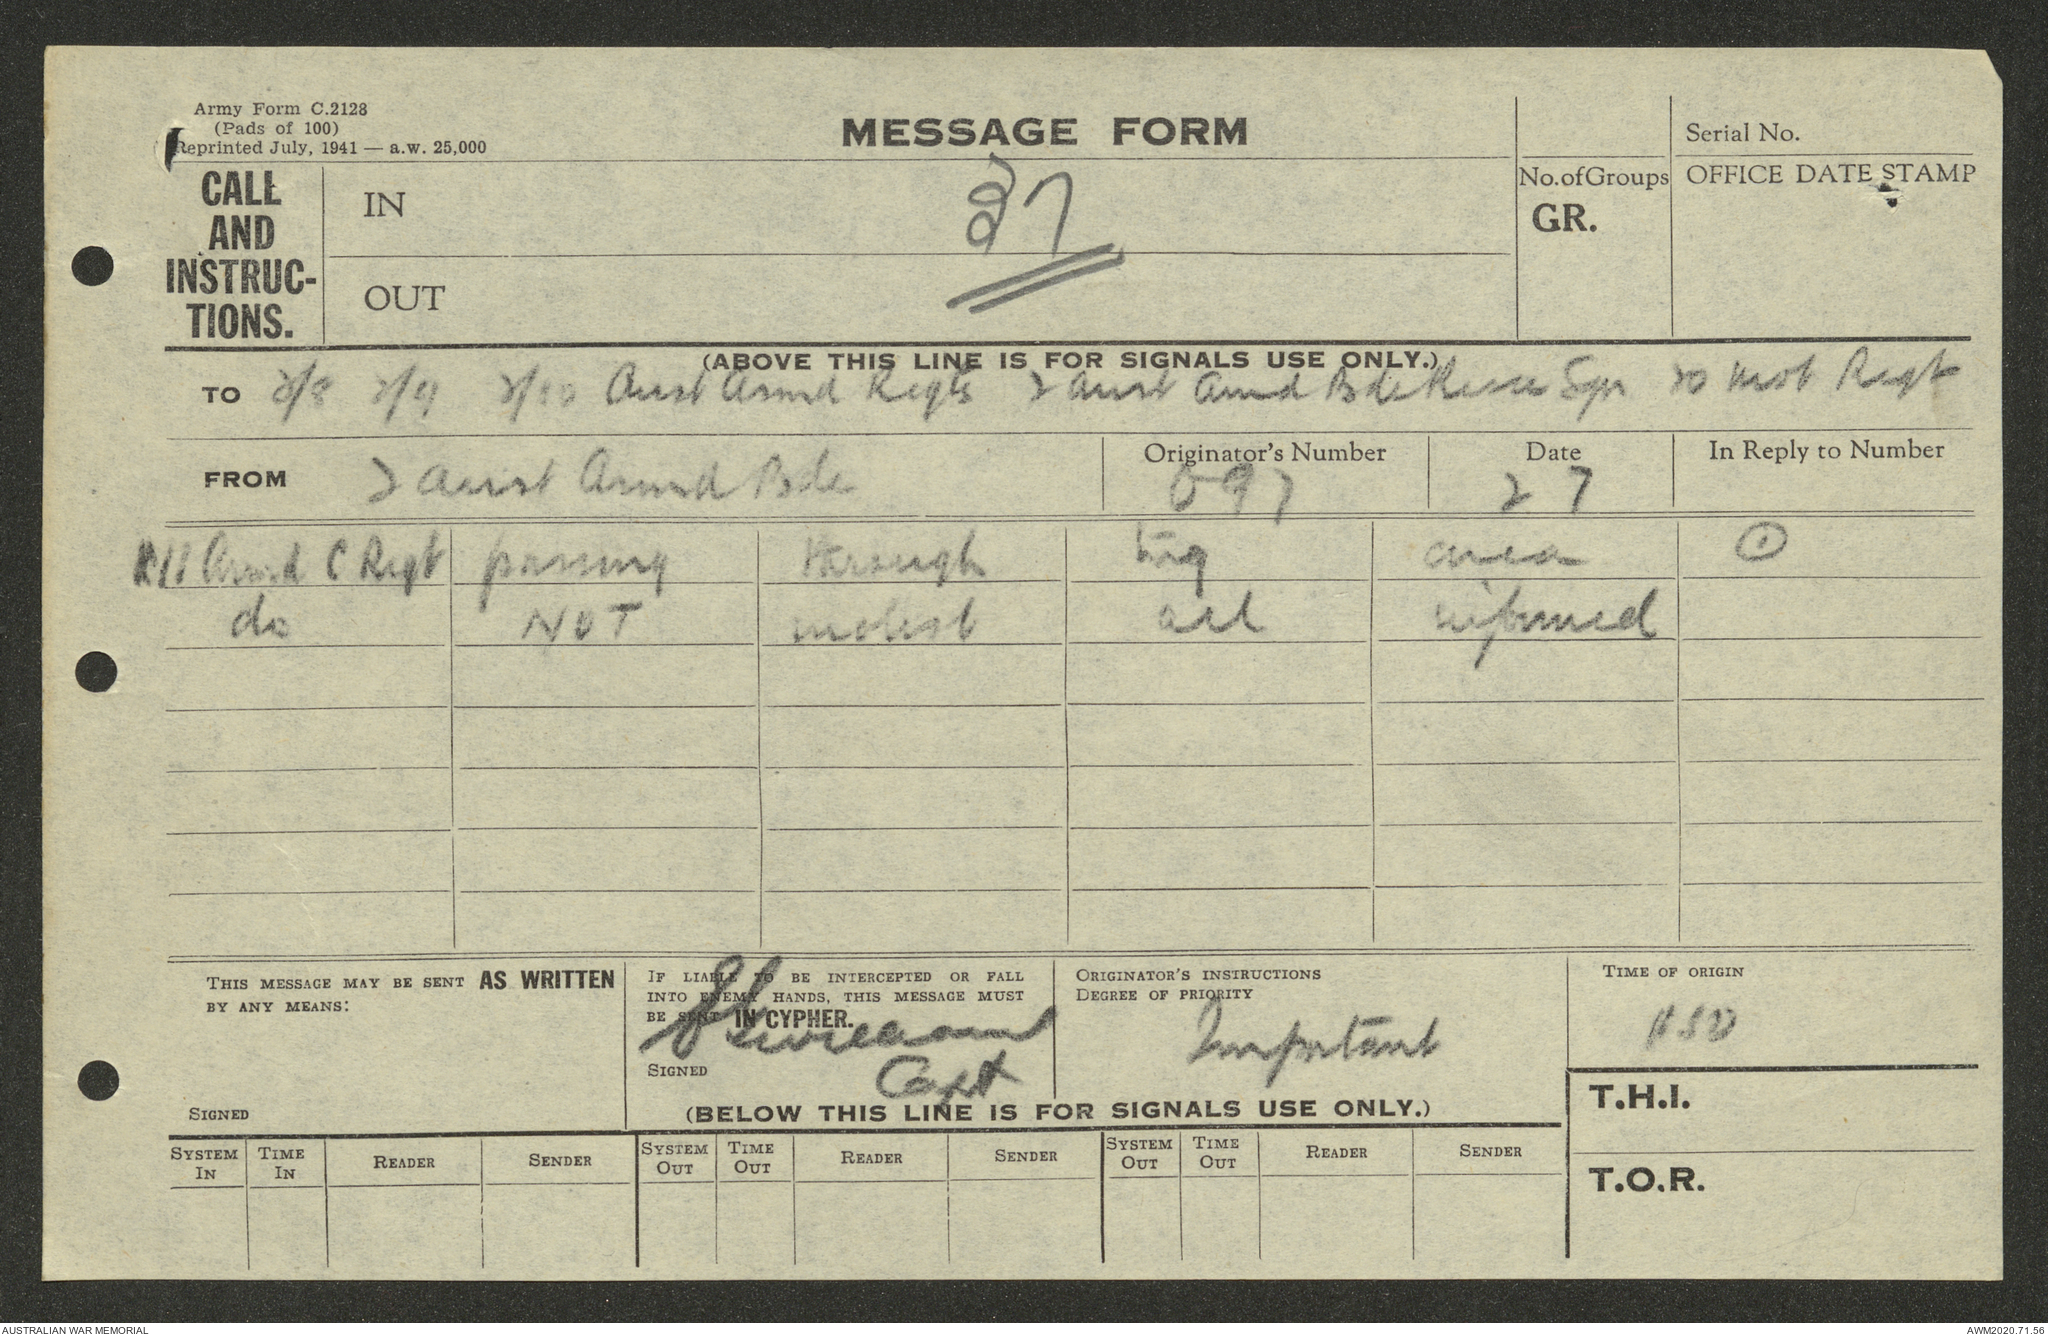 Army Form C.2128
(Pads of 100)
Reprinted July, 1941 — a.w. 25,000
MESSAGE FORM
Serial No.
CALL AND INSTRUC-TIONS.
IN
37
No. of Groups
GR.
OFFICE DATE STAMP
OUT
(ABOVE THIS LINE IS FOR SIGNALS USE ONLY.)
TO 2/8 2/9 2/10 Aust Armd Regts 2 Aust Armd Bde Recce Sqn 20 Mot Regt
FROM 2 Aust Armd Bde
Originator's Number
097
Date
27
In Reply to Number
11 Armd C Regt passing through trg area ①
do NOT molest all informed
THIS MESSAGE MAY BE SENT AS WRITTEN
BY ANY MEANS:
SIGNED
IF LIABLE TO BE INTERCEPTED OR FALL
INTO ENEMY HANDS, THIS MESSAGE MUST
BE SENT IN CYPHER.
SIGNED
Capt
ORIGINATOR'S INSTRUCTIONS
DEGREE OF PRIORITY
Important
TIME OF ORIGIN
1150
T.H.I.
T.O.R.
(BELOW THIS LINE IS FOR SIGNALS USE ONLY.)
SYSTEM IN TIME IN READER SENDER SYSTEM OUT TIME OUT READER SENDER SYSTEM OUT TIME OUT READER SENDER
AUSTRALIAN WAR MEMORIAL
AWM2020.71.56